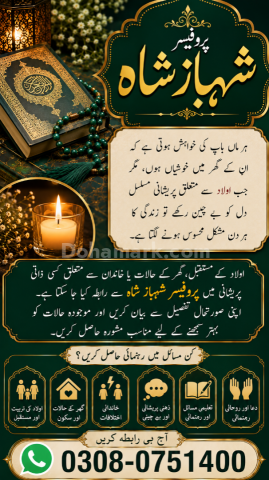 پروفیسر
شہباز شاہ
ہر ماں باپ کی خواہش ہوتی ہے کہ
ان کے گھر میں خوشیاں ہوں، مگر
جب اولاد سے متعلق پریشانی مسلسل
دل کو بے چین رکھے تو زندگی کا
ہر دن مشکل محسوس ہونے لگتا ہے۔
Dohamark.com
اولاد کے مستقبل، گھر کے حالات یا خاندان سے متعلق کسی ذاتی
پریشانی میں پروفیسر شہباز شاہ سے رابطہ کیا جا سکتا ہے۔
اپنی صورتحال تفصیل سے بیان کریں اور موجودہ حالات کو
بہتر سمجھنے کے لیے مناسب مشورہ حاصل کریں۔
کن مسائل میں رہنمائی حاصل کریں؟
دعا اور روحانی
رہنمائی
تعلیمی مسائل
اور رہنمائی
ذہنی پریشانی
اور بے چینی
خاندانی
اختلافات
گھر کے حالات
اور سکون
اولاد کی تربیت
اور مستقبل
آج ہی رابطہ کریں
0308-0751400